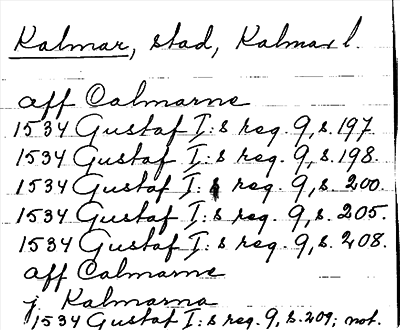 Kalmar, stad, Kalmar l.
aff Calmarne
1534 Gustaf I:s reg. 9, s. 197.
1534 Gustaf I:s reg. 9, s. 198.
1534 Gustaf I:s reg. 9, s. 200.
1534 Gustaf I:s reg. 9, s. 205.
1534 Gustaf I:s reg. 9, s. 208.
aff Calmarne
j Kalmarna
1534 Gustaf I:s reg. 9, s. 209; not.